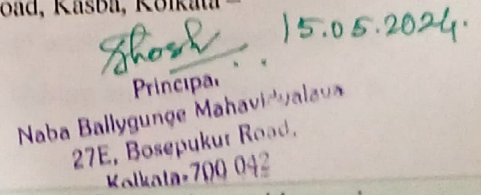 oad, Kasba, Kolkata –
Ghosh 15.05.2024.
Principal
Naba Ballygunge Mahavidyalaya
27E, Bosepukur Road,
Kolkata-700 042